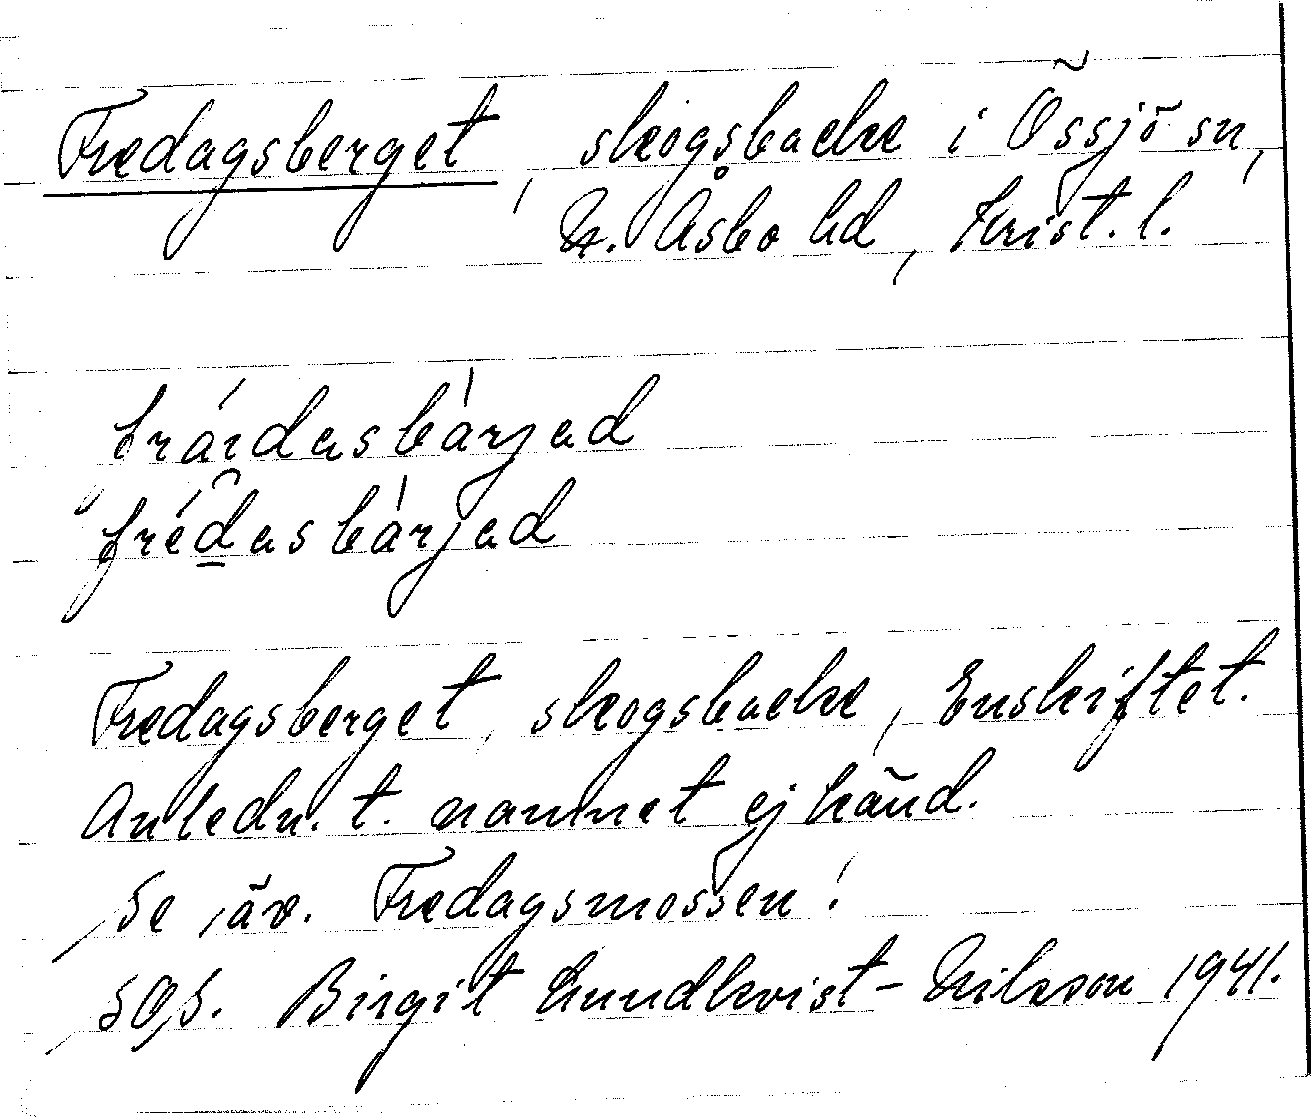 Fredagsberget, skogsbacke i Össjö sn,
N. Åsbo hd, Krist. l.
fráidasbàrjad
frédasbàrjad
Fredagsberget, skogsbacke, Enskiftet.
Anledn. t. namnet ej känd.
Se äv. Fredagsmossen!
SOS. Birgit Lundkvist-Nilsson 1941.